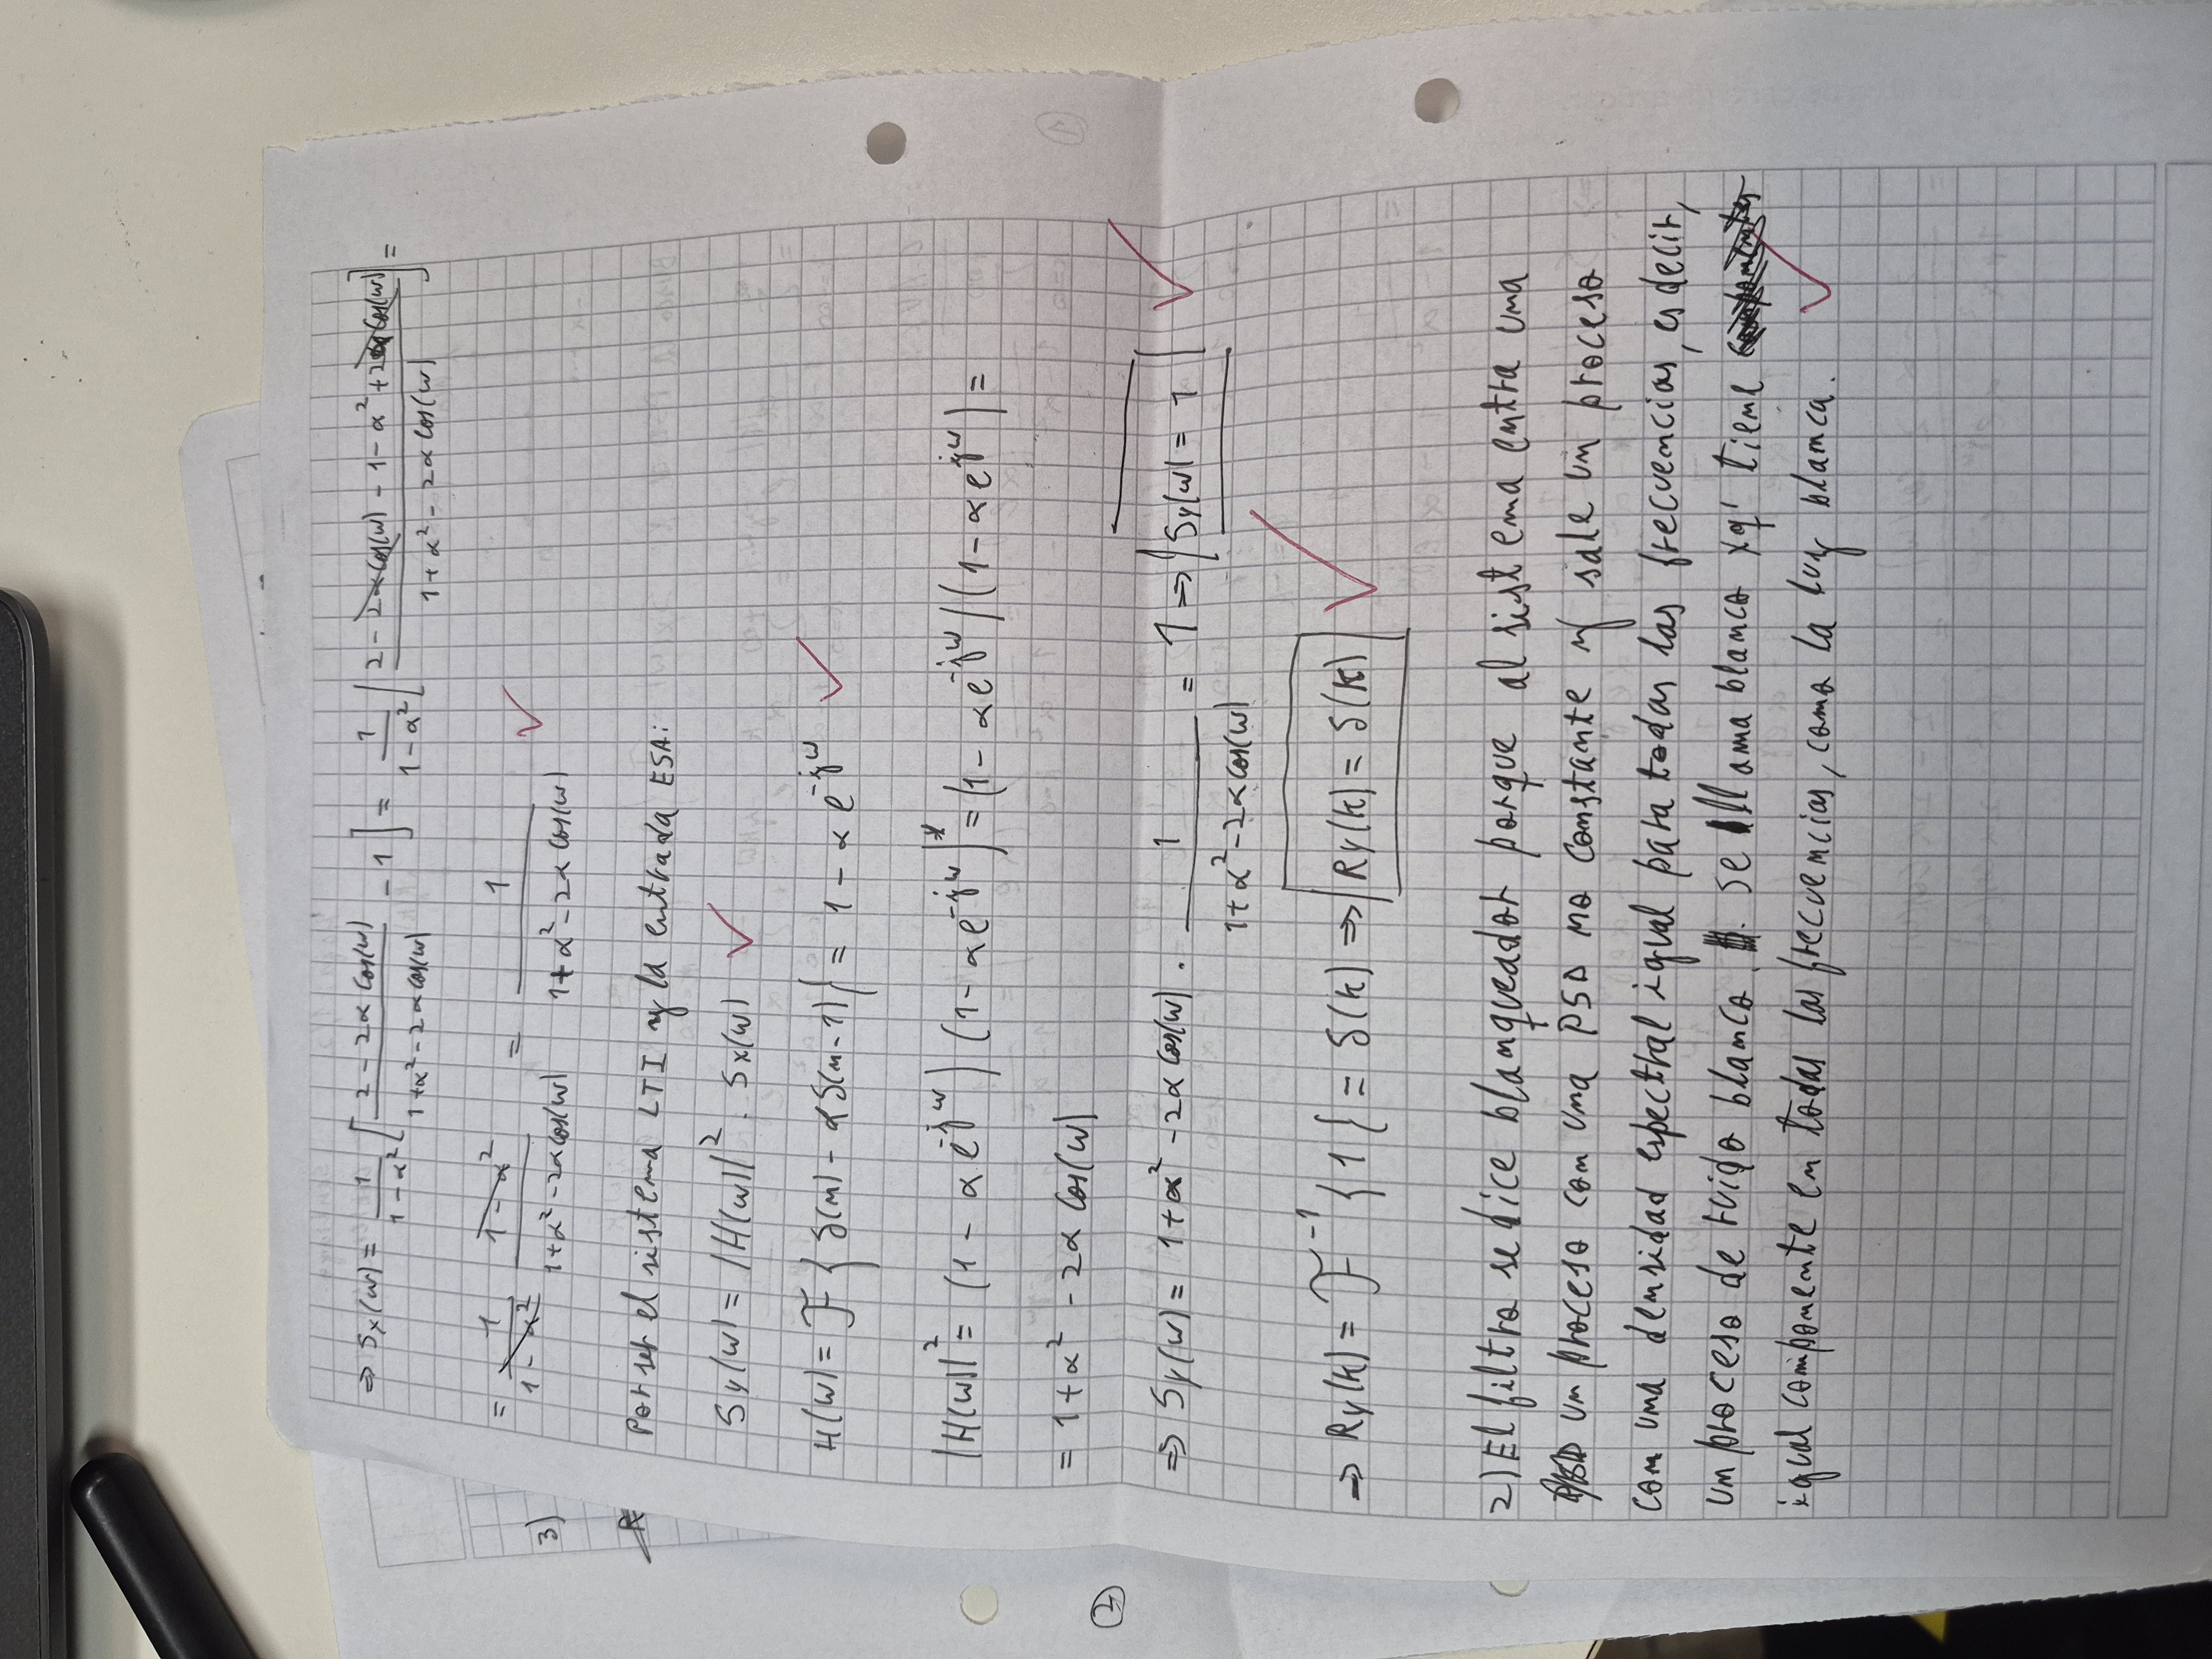 ⇒ Sx(w) = 1/(1-α²) [ (2 - 2α cos(w))/(1+α²-2α cos(w)) - 1 ] = 1/(1-α²) [ (2 - 2α cos(w) - 1 - α² + 2α cos(w))/(1+α²-2α cos(w)) ] =
= 1/(1-α²) (1-α²)/(1+α²-2α cos(w)) = 1/(1+α²-2α cos(w)) ✓
3)
R
Por ser el sistema LTI y la entrada ESA:
Sy(w) = |H(w)|² . Sx(w) ✓
H(w) = F{δ(n) - αδ(n-1)} = 1 - α e^-jw ✓
|H(w)|² = (1 - α e^-jw) (1 - α e^-jw)* = (1 - α e^-jw)(1 - α e^jw) =
= 1+α² - 2α cos(w)
②
①
⇒ Sy(w) = 1+α² - 2α cos(w) . 1/(1+α²-2α cos(w)) = 1 ⇒ Sy(w) = 1 ✓
⇒ Ry(k) = F^-1 {1} = δ(k) ⇒ Ry(k) = δ(k) ✓
2) El filtro se dice blanqueador porque al sistema entra una
PSD un proceso con una PSD no constante y sale un proceso
con una densidad espectral igual para todas las frecuencias, es decir,
un proceso de ruido blanco. Se llama blanco xq' tiene componentes
igual componente en todas las frecuencias, como la luz blanca. ✓